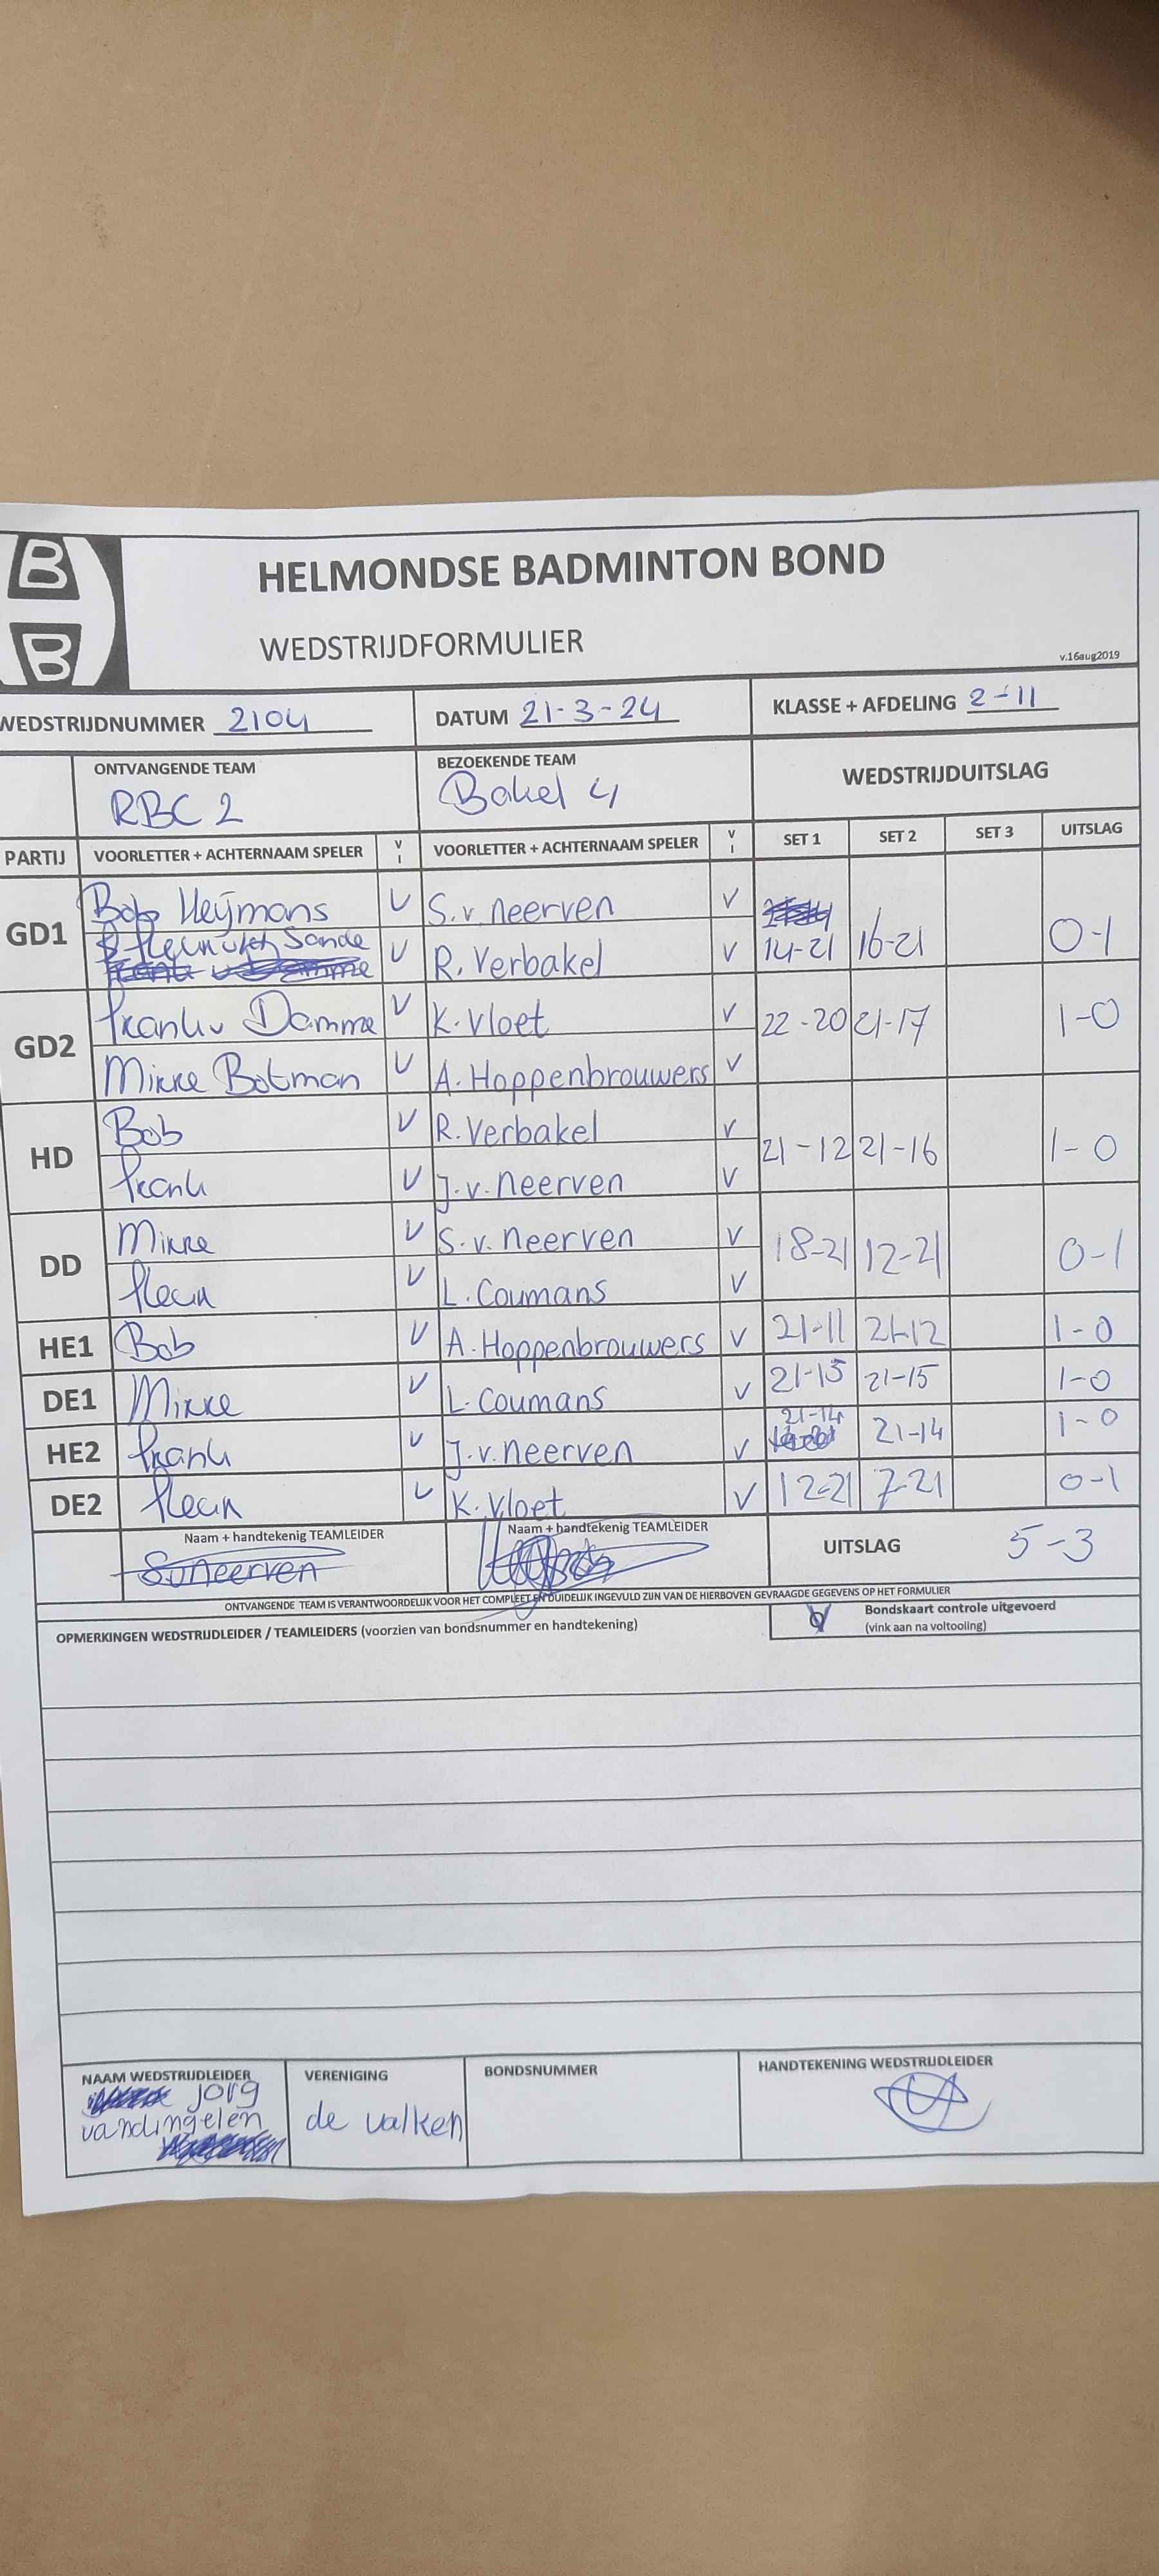 B
B
HELMONDSE BADMINTON BOND
WEDSTRIJDFORMULIER
v.16aug2019
WEDSTRIJDNUMMER 2104 DATUM 21-3-24 KLASSE + AFDELING 2-11
ONTVANGENDE TEAM BEZOEKENDE TEAM WEDSTRIJDUITSLAG
RBC 2 Bakel 4
PARTIJ VOORLETTER + ACHTERNAAM SPELER V I VOORLETTER + ACHTERNAAM SPELER V I SET 1 SET 2 SET 3 UITSLAG
GD1 Bob Heijmans V S. v. neerven V
Sande V R. Verbakel V 14-21 16-21 0-1
GD2 Frank v Damme V K. Vloet V 22-20 21-17 1-0
Mikke Botman V A. Hoppenbrouwers V
HD Bob V R. Verbakel V 21-12 21-16 1-0
Frank V J. v. neerven V
DD Mikke V S. v. neerven V 18-21 12-21 0-1
V L. Coumans V
HE1 Bob V A. Hoppenbrouwers V 21-11 21-12 1-0
DE1 Mikke V L. Coumans V 21-15 21-15 1-0
HE2 Frank V J. v. neerven V 21-14 21-14 1-0
DE2 V K. Vloet V 12-21 7-21 0-1
Naam + handtekenig TEAMLEIDER Naam + handtekenig TEAMLEIDER UITSLAG 5-3
S. v. neerven
ONTVANGENDE TEAM IS VERANTWOORDELIJK VOOR HET COMPLEET EN DUIDELIJK INGEVULD ZIJN VAN DE HIERBOVEN GEVRAAGDE GEGEVENS OP HET FORMULIER
OPMERKINGEN WEDSTRIJDLEIDER / TEAMLEIDERS (voorzien van bondsnummer en handtekening) Bondskaart controle uitgevoerd
(vink aan na voltooling)
NAAM WEDSTRIJDLEIDER VERENIGING BONDSNUMMER HANDTEKENING WEDSTRIJDLEIDER
jorg
vandingelen de valken